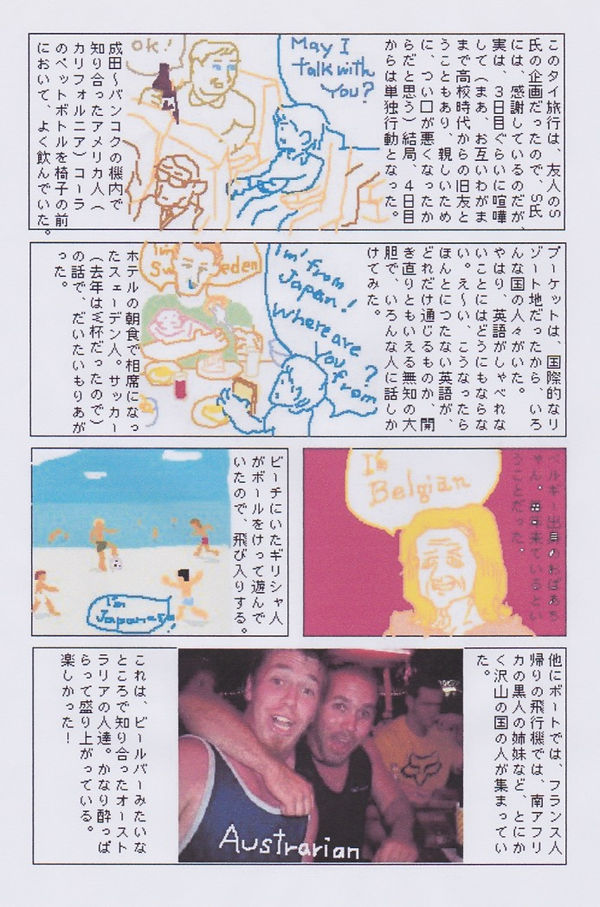 このタイ旅行は、友人のS
氏の企画だったので、S氏
には、感謝しているのだが、
実は、3日目ぐらいに喧嘩
して(まあ、お互いわがま
まで高校時代からの旧友と
うこともあり、親しいため
に、つい口が悪くなったか
らだと思う)結局、4日目
からは単独行動となった。
May I
talk with
You?
OK!
成田〜バンコクの機内で
知り合ったアメリカ人(
カリフォルニア)コーラ
のペットボトルを椅子の前
において、よく飲んでいた。
プーケットは、国際的なリ
ゾート地だったから、いろ
んな国の人々がいた。
やはり、英語がしゃべれな
いことにはどうにもならな
い。え〜い、こうなったら
ほんとにつたない英語が、
どれだけ通じるものか、開
き直りともいえる無知の大
胆で、いろんな人に話しか
けてみた。
I'm from
Japan!
Where are
You from?
I'm
Sweden
ホテルの朝食で相席になっ
たスェーデン人。サッカー
(去年はW杯だったので)
の話で、だいたいもりあが
った。
ベルギー出身のおばあち
ゃん。毎年来ているとい
うことだった。
I'm
Belgian
ビーチにいたギリシャ人
がボールをけって遊んで
いたので、飛び入りする。
I'm
Japanese
他にボートでは、フランス人
帰りの飛行機では、南アフリ
カの黒人の姉妹など、とにか
く沢山の国の人が集まってい
た。
Austrarian
これは、ビールバーみたいな
ところで知り合ったオースト
ラリアの人達。かなり酔っぱ
らって盛り上がっている。
楽しかった!